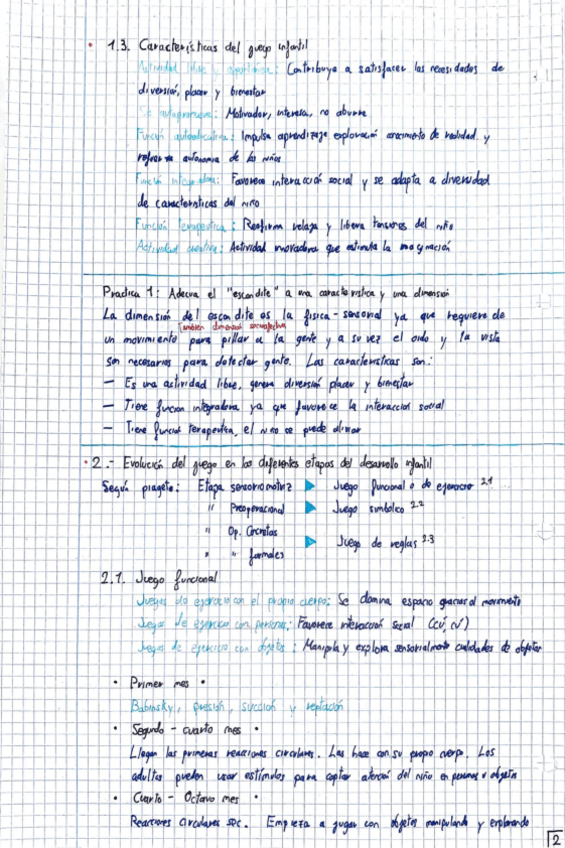 • 1.3. Características del juego infantil
Actividad libre y espontánea: Contribuye a satisfacer las necesidades de
diversión, placer y bienestar
Se autopromueve: Motivador, interesa, no aburre
Función autoeducativa: Impulsa aprendizaje exploración conocimiento de realidad y
refuerza autonomía de los niños
Función integradora: Favorece interacción social y se adapta a diversidad
de características del niño
Función terapeutica: Reafirma relaja y libera tensiones del niño
Actividad creativa: Actividad inovadora que estimula la imaginación
Practica 1: Adecua el "escondite" a una característica y una dimensión
La dimensión del escondite es la física-sensorial ya que requiere de
también dimensión socioafectiva
un movimiento para pillar a la gente y a su vez el oido y la vista
son necesarios para detectar gente. Las características son:
— Es una actividad libre, genera diversión placer y bienestar
— Tiene funcion integradora ya que favorece la interaccion social
— Tiene función terapeutica, el niño se puede aliviar
• 2.- Evolución del juego en las diferentes etapas del desarrollo infantil
Según piaget: Etapa sensoriomotriz ▶ Juego funcional o de ejercicio 2.1
" Preoperacional ▶ Juego simbólico 2.2
" Op. Concretas
▶ Juego de reglas 2.3
" " formales
2.1. Juego funcional
Juegos de ejercicio con el propio cuerpo: Se domina espacio gracias al movimiento
Juegos de ejercicio con personas: Favorece interacción social
Juegos de ejercicio con objetos: Manipula y explora sensorialmente cualidades de objetos
• Primer mes •
Babinsky, presión, succión y reptación
• Segundo - cuarto mes •
Llegan las primeras reacciones circulares. Las hace con su propio cuerpo. Los
adultos pueden usar estímulos para captar atención del niño en personas u objetos
• Cuarto - Octavo mes •
Reacciones circulares sec. Empieza a jugar con objetos manipulando y explorando
2